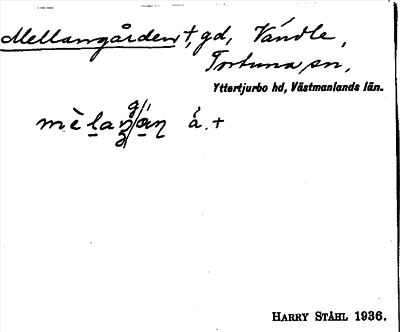 Mellangården †, gd, Vändle,
Tortuna sn,
Yttertjurbo hd, Västmanlands län.
å. +
HARRY STÅHL 1936.